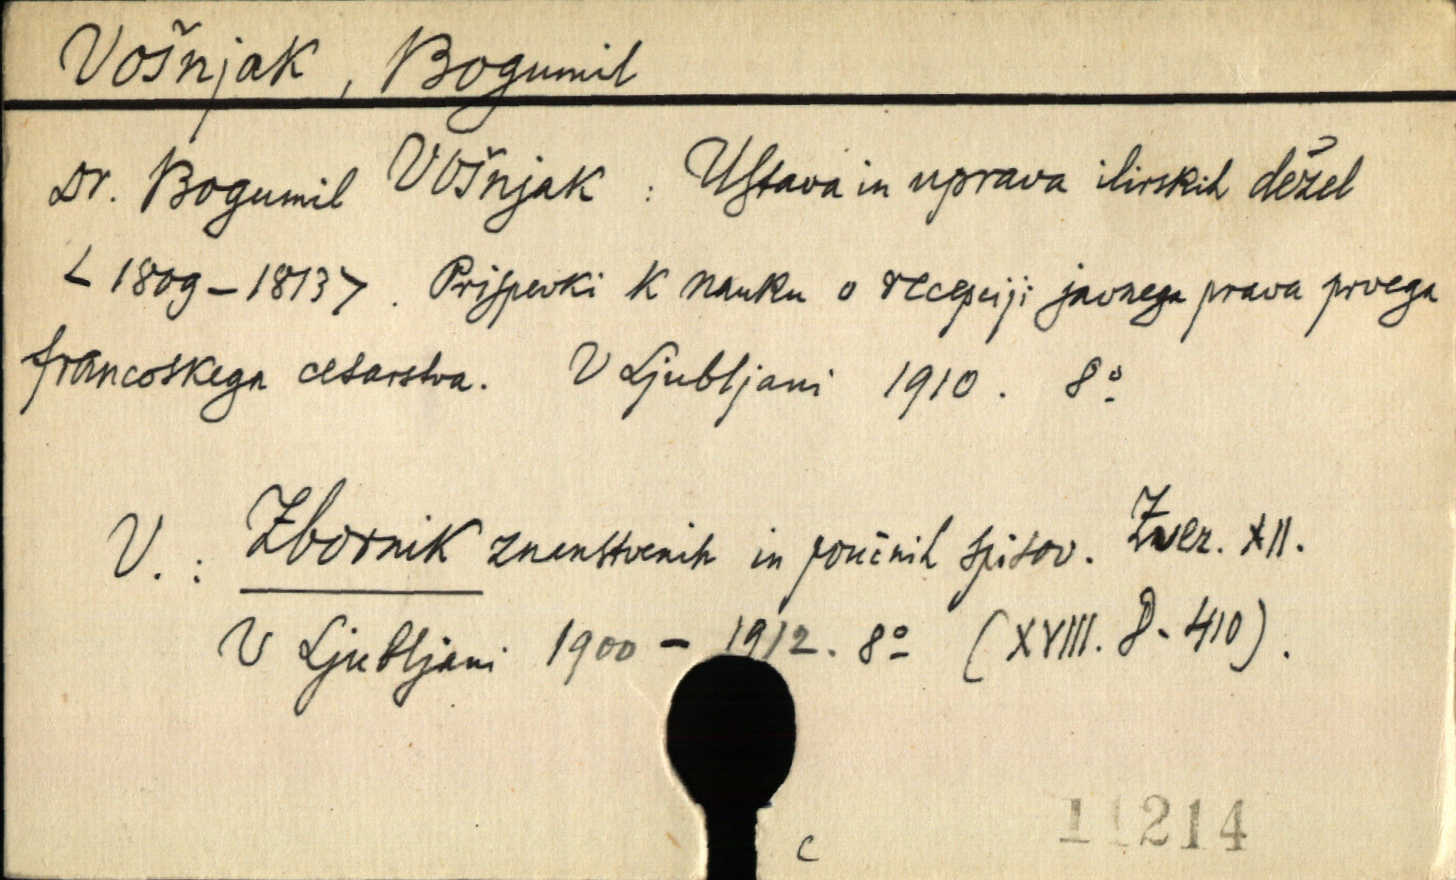 Vošnjak, Bogumil
Dr. Bogumil Vošnjak : Ustava in uprava ilirskih dežel
<1809-1813>. Prispevki k nauku o recepciji javnega prava prvega
francoskega cesarstva. V Ljubljani 1910. 8º
V.: Zbornik znanstvenih in poučnih spisov. Zvez. XII.
V Ljubljani 1900 - 1912. 8º (XVIII. 8. 410).
c
11214